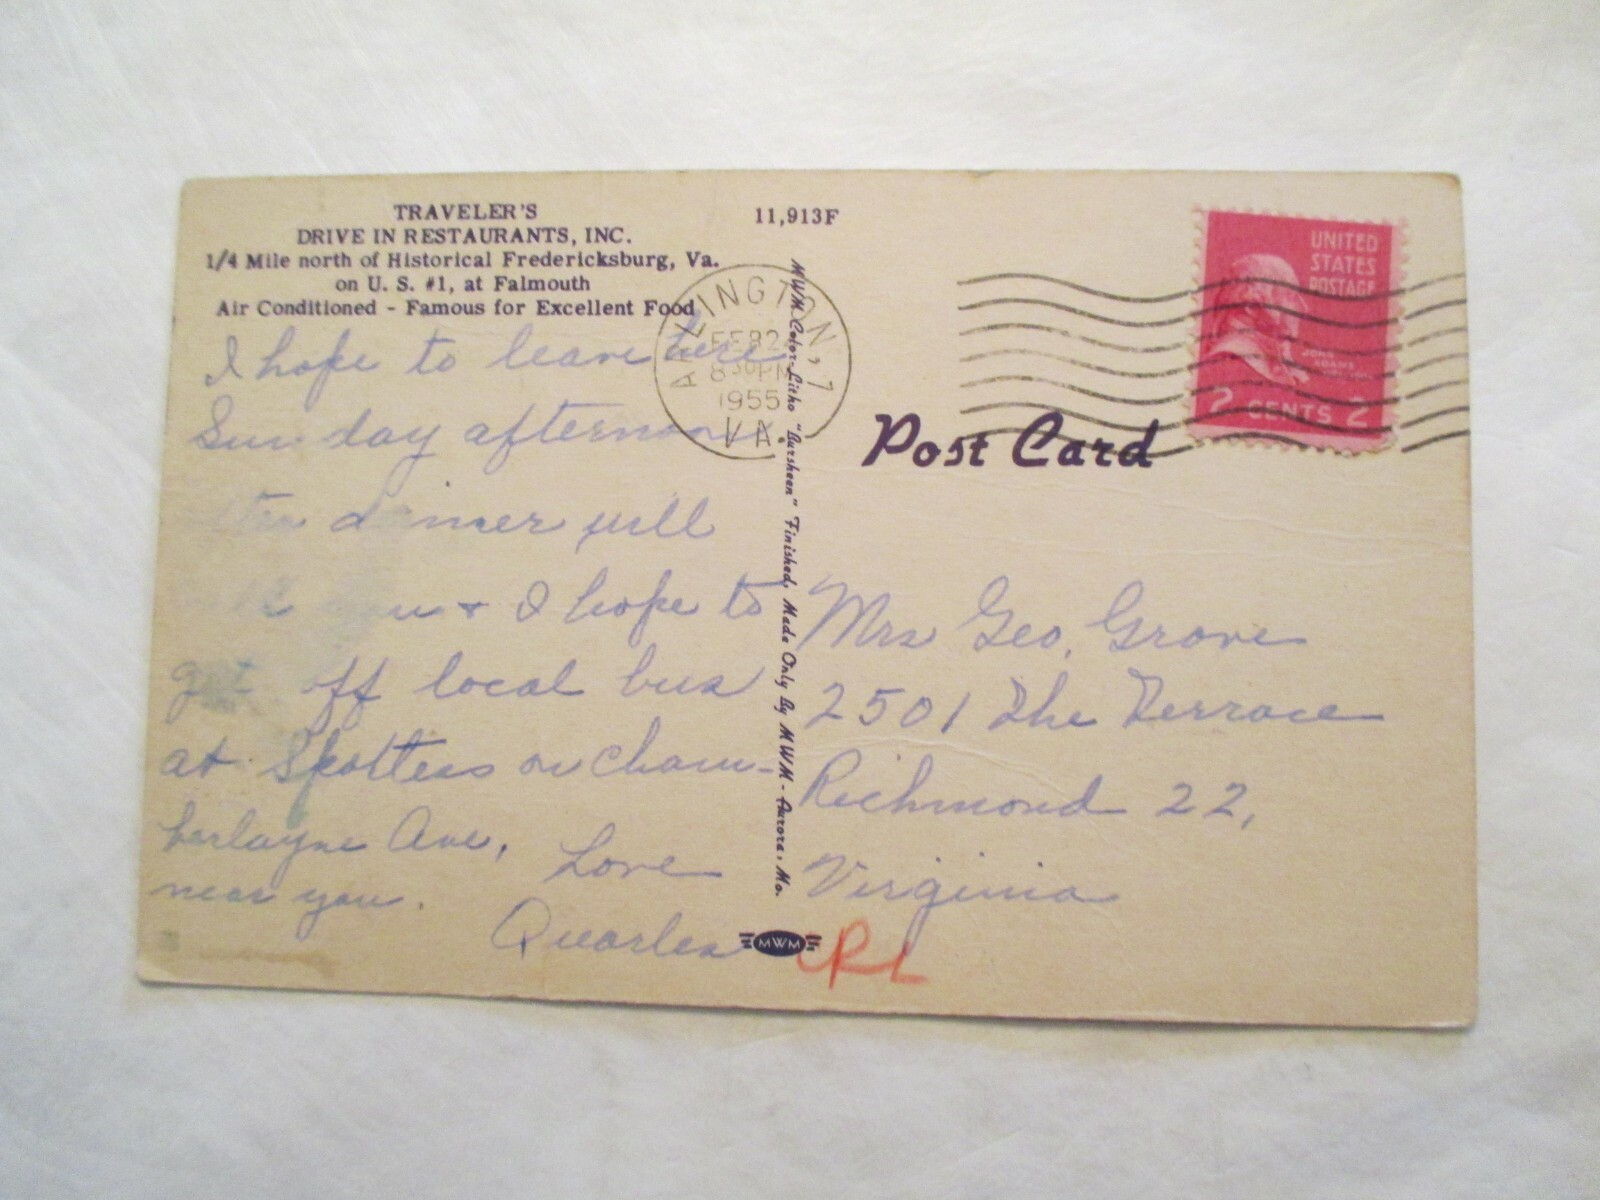 TRAVELER'S
DRIVE IN RESTAURANTS, INC.
1/4 Mile north of Historical Fredericksburg, Va.
on U. S. #1, at Falmouth
Air Conditioned - Famous for Excellent Food
11,913F
I hope to leave here
Sunday afternoon
dinner will
you + I hope to
get off local bus
at Spotters on Cham-
berlayne Ave,
near you.
Love
Quarles
ARLINGTON, 7
FEB 2
8 30 PM
1955
VA.
MWM Color-Litho "Dursheen" Finished, Made Only By MWM - Aurora, Mo.
MWM
UNITED
STATES
POSTAGE
JOHN
ADAMS
2 CENTS 2
Post Card
Mrs Geo. Grove
2501 The Terrace
Richmond 22,
Virginia
RL